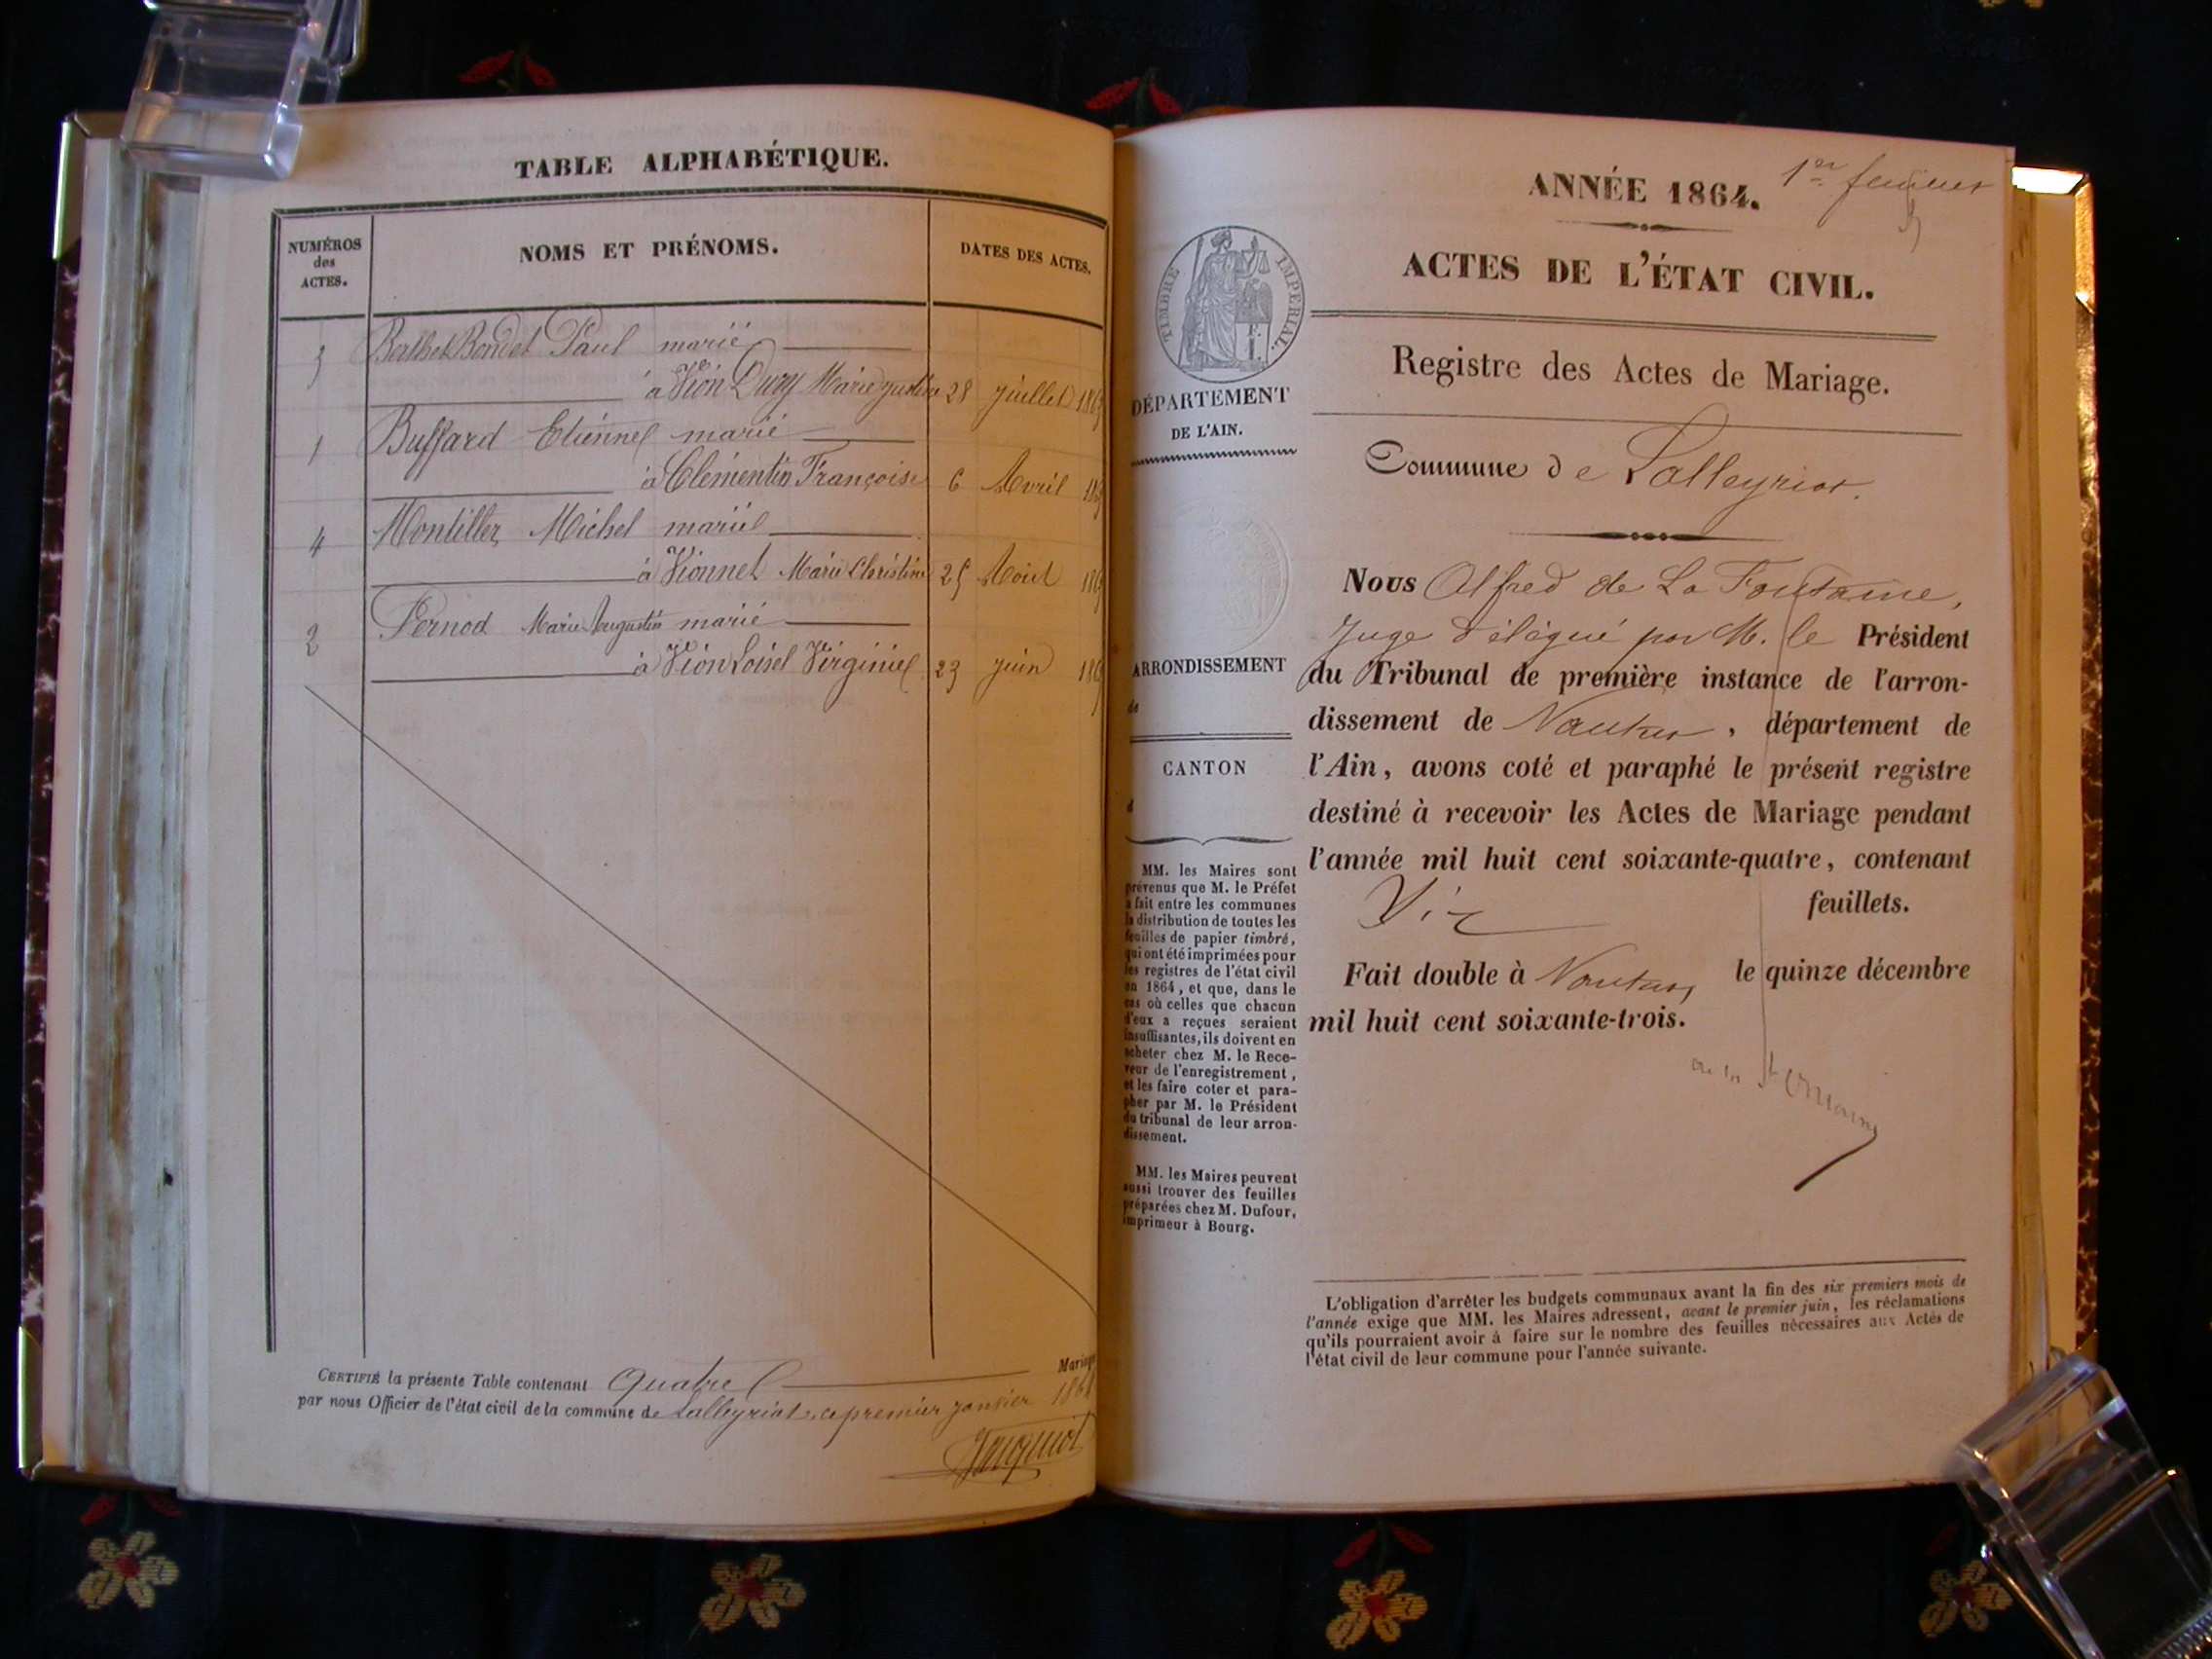 TABLE ALPHABÉTIQUE.
NUMÉROS
des
ACTES.
NOMS ET PRÉNOMS.
DATES DES ACTES.
3 Berthet Bondet Paul marié
à Vion Dury Marie Justine 28 juillet
1 Buffard Etienne marié
à Clementin Françoise 6 Avril
4 Montillet Michel marié
à Vionnet Marie Christine 25 Aout
2 Pernod Marie Augustin marié
à Vion Loisel Virginie 23 juin
CERTIFIÉ la présente Table contenant Quatre Mariages
par nous Officier de l'état civil de la commune de Lalleyriat, ce premier janvier 1864
1er feuillet
ANNÉE 1864.
ACTES DE L'ÉTAT CIVIL.
Registre des Actes de Mariage.
Commune de Lalleyriat.
TIMBRE IMPERIAL.
DÉPARTEMENT
DE L'AIN.
ARRONDISSEMENT
de
CANTON
d
MM. les Maires sont
prévenus que M. le Préfet
a fait entre les communes
la distribution de toutes les
feuilles de papier timbré,
qui ont été imprimées pour
les registres de l'état civil
en 1864, et que, dans le
cas où celles que chacun
d'eux a reçues seraient
insuffisantes, ils doivent en
acheter chez M. le Rece-
veur de l'enregistrement,
et les faire coter et para-
pher par M. le Président
du tribunal de leur arron-
dissement.
MM. les Maires peuvent
aussi trouver des feuilles
préparées chez M. Dufour,
imprimeur à Bourg.
Nous Alfred de La Fontaine,
Juge délégué par M. le Président
du Tribunal de première instance de l'arron-
dissement de Nantua, département de
l'Ain, avons coté et paraphé le présent registre
destiné à recevoir les Actes de Mariage pendant
l'année mil huit cent soixante-quatre, contenant
feuillets.
Fait double à Nantua, le quinze décembre
mil huit cent soixante-trois.
L'obligation d'arrêter les budgets communaux avant la fin des six premiers mois de
l'année exige que MM. les Maires adressent, avant le premier juin, les réclamations
qu'ils pourraient avoir à faire sur le nombre des feuilles nécessaires aux Actes de
l'état civil de leur commune pour l'année suivante.